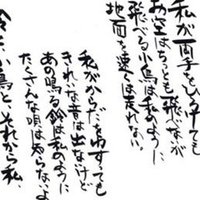 私が両手をひろげても
お空はちっとも飛べないが
飛べる小鳥は私のように
地面を速くは走れない。
私がからだをゆすっても
きれいな音は出ないけど
あの鳴る鈴は私のように
たくさんな唄は知らないよ
鈴と、小鳥と、それから私、